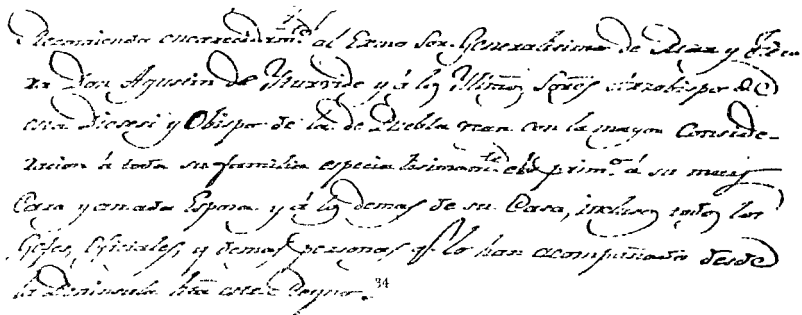 Recomienda encarecidam.te al Exmo Sor. Generalisimo de Mar y tierra
Don Agustin de Yturvide y á los Yllmos Sores Arzobispo de
esta Diosesi y Obispo de la de Puebla vean con la mayor Conside-
racion á toda su familia especialisimam.te el prim.o á su muy
Cara y amada Esposa y á los demas de su Casa, inclusos todos los
Gefes, Oficiales, y demas personas q.e lo han acompañado desde
la Peninsula hta este Reyno.34